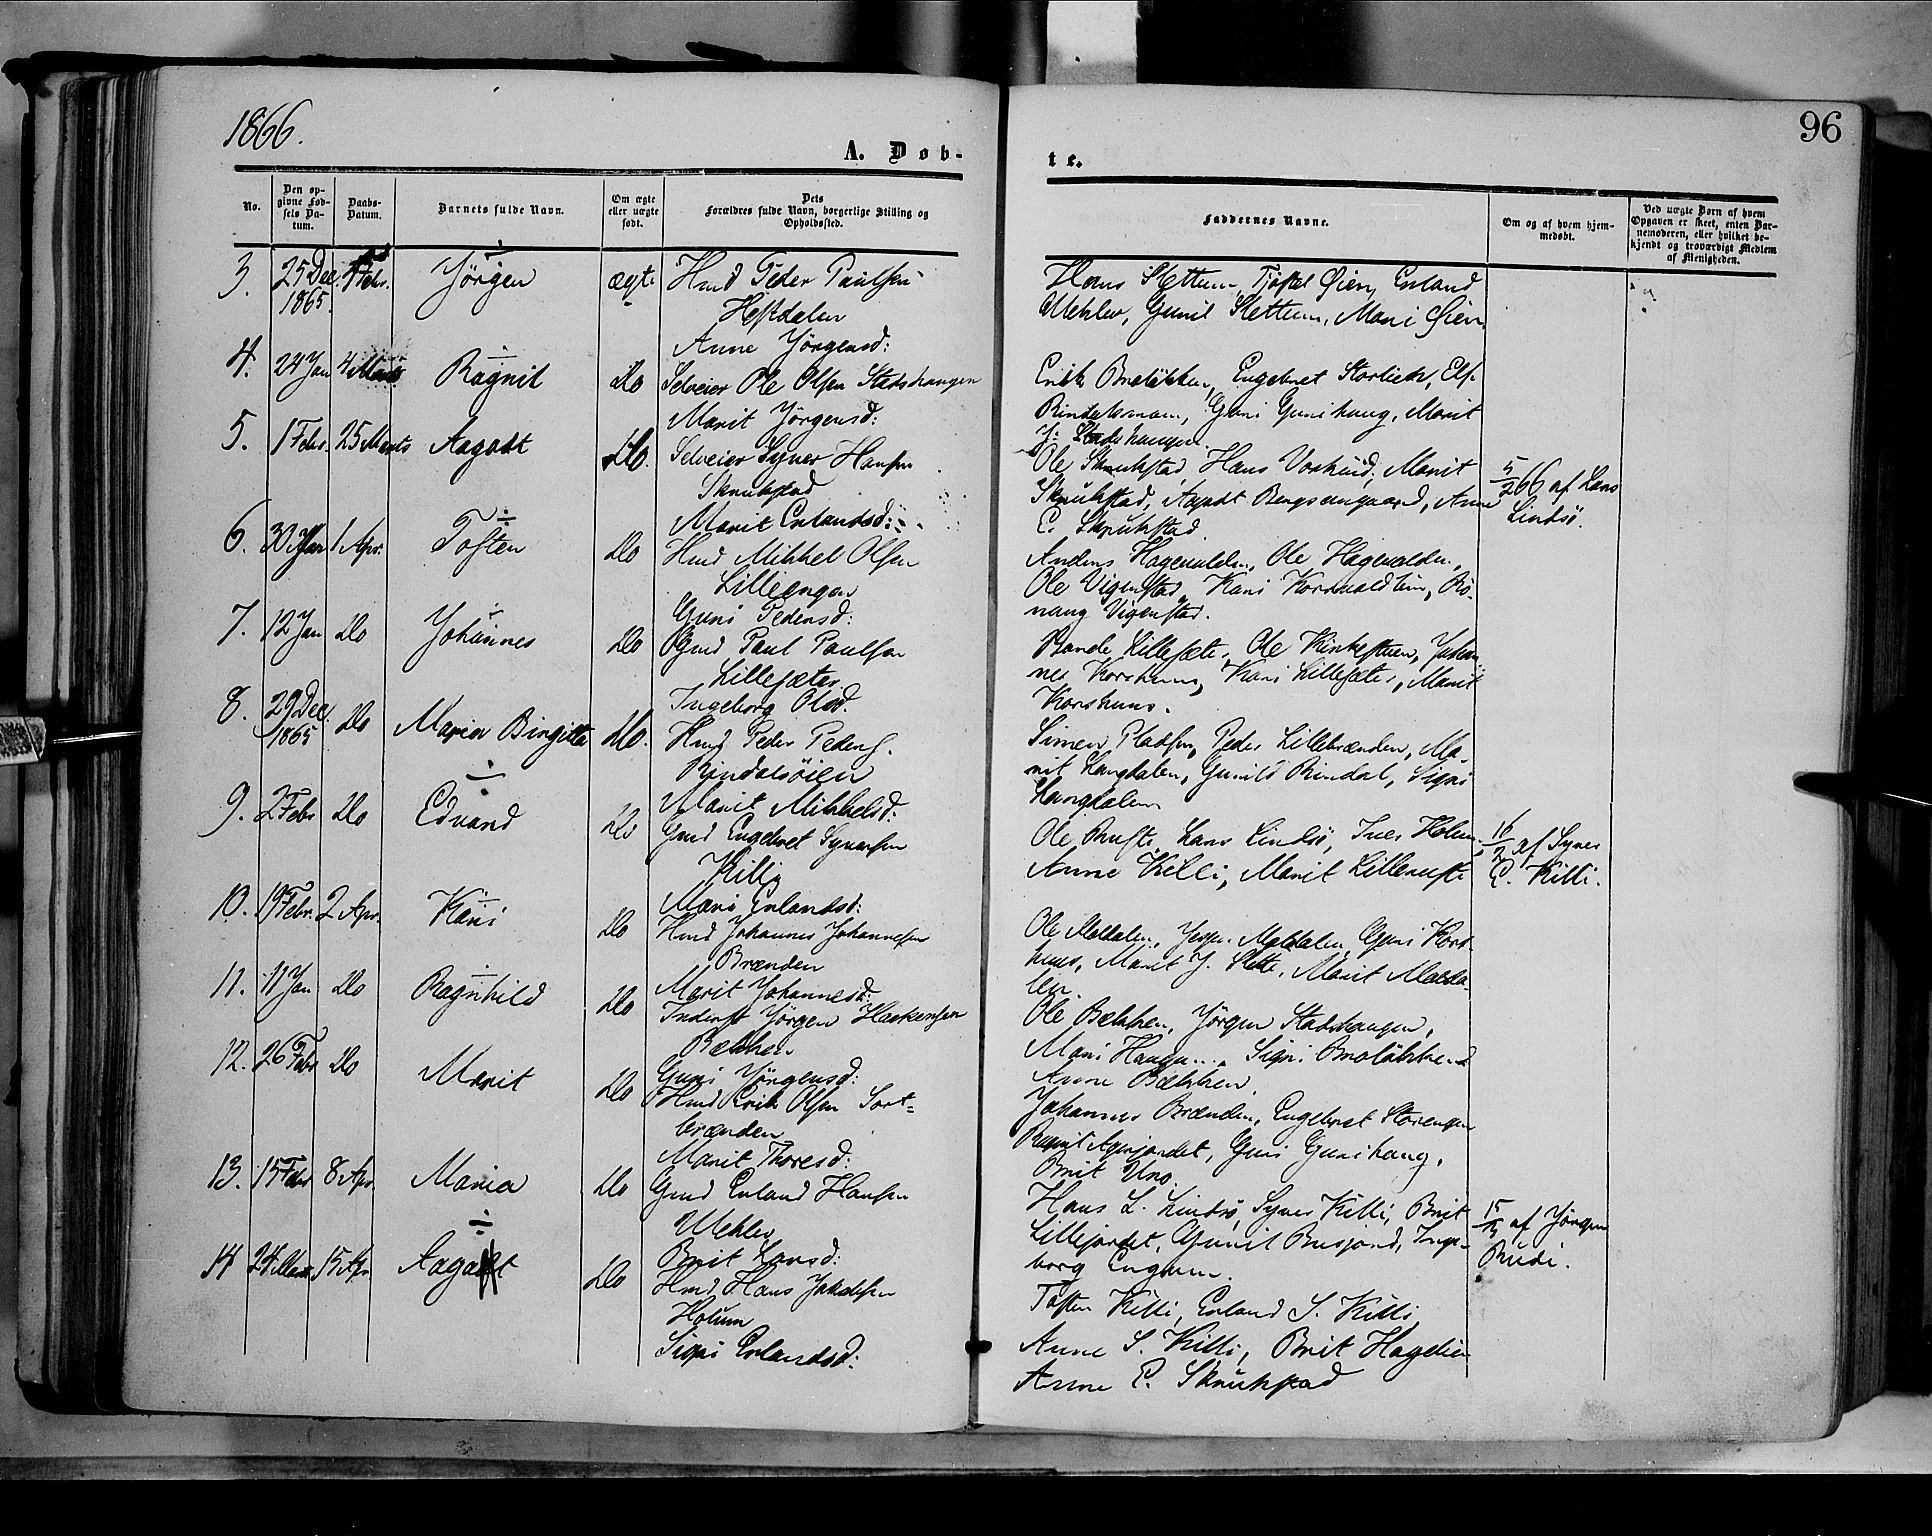 1866.
96
A. Døb-
te.
No.
Den opgivne Fødsels Datum.
Daabs-Datum.
Barnets fulde Navn.
Om ægte eller uægte født.
Dets Forældres fulde Navn, borgerlige Stilling og Opholdssted.
Faddernes Navne.
Om og af hvem hjemmedøbt.
Ved uægte Børn af hvem Opgaven er skeet, enten Barnemoderen, eller hvilket bekjendt og troværdigt Medlem af Menigheden.
3. 25 Dec. 1865. Febr. Jörgen ægte Hmd Peder Paulsen
Heftdalen
Anne Jörgensd:
Hans Slettum, Tjöstel Öien, Erland
Mehlev, Gunil Slettum, Mari Öien
4. 24 Jan 4 Marts Ragnil Do Selveier Ole Olsen Stadshaugen
Marit Jörgensd:
Erik Brolökken, Engebret Storlien, Els.
Rindalsmoen, Guri Gurihaug, Marit
J. Stadshaugen.
5. 1 Febr. 25 Marts Aagodt Do. Selveier Syver Hansen
Skrukstad
Marit Erlandsd:
Ole Skrukstad, Hans Vorkind, Marit
Skrukstad, Aagodt Bergseengaard, Anne
E. Skrukstad
5/2 66 af Lars
Lindsö.
6. 30 Jan 1 Apr. Tosten Do Hmd Mikkel Olsen
Lilleengen
Guri Pedersd:
Anders Hagevolden, Ole Hagevolden,
Ole Vigenstad, Kari Kornvoldtun, Rö-
naug Vigenstad.
7. 12 Jan Do Johannes Do Gmd Paul Paulsen
Lillesæter
Ingeborg Olsd.
Baade Lillesæte, Ole Kirkestuen, Johan-
nes Korshuus, Kari Lillesæter, Marit
Korshuus.
8. 29 Dec. 1865 Do Maria Birgitta Do. Hmd Peder Peders.
Rindalsöien
Marit Mikkelsd:
Simen Pladsen, Peder Lillebrænden, Ma-
rit Langdalen, Gunild Rindal, Signe
Langdalen
9. 2 Febr Do Edvard Do Gmd Engebret Syversen
Killi
Mari Erlandsd:
Ole Brufte, Lars Lindsö, Iver Holum,
Anne Killi, Marit Lillebrufte
16/2 af Syver
E. Killi.
10. 19 Febr. 2 Apr. Kari Do Hmd Johannes Johannesen
Brænden
Marit Johannesd:
Ole Moldalen, Jesper Moldalen, Guri Kors-
huus, Marit J. Slette, Marit Molda-
len.
11. 11 Jan Do Ragnhild Do Inderst Jörgen Haakensen
Bækken
Guri Jörgensd:
Ole Bækken, Jörgen Stadshaugen,
Mari Haugen, Signi Brolökken
Anne Bækken
12. 26 Febr Do Marit Do Hmd Erik Olsen Sort=
brænden
Marit Thoresd:
Johannes Brænden, Engebret Storengen
Ragnil Agerjordet, Guri Gurihaug,
Brit Uno
13. 15 Febr 8 Apr. Maria Do Gmd Erland Hansen
Mehlev
Brit Larsd:
Hans L. Lindsö, Syver Killi, Brit
Lillejordet, Gunil Busjord, Inge-
borg Engum.
15/3 af Jörgen
Rudi.
14 24 Mars 15 Apr Aagaat Do Hmd Hans Jakobsen
Holum
Signi Erlandsd:
Tosten Killi, Erland S. Killi,
Anne S. Killi, Brit Hagelien
Anne E. Skrukstad